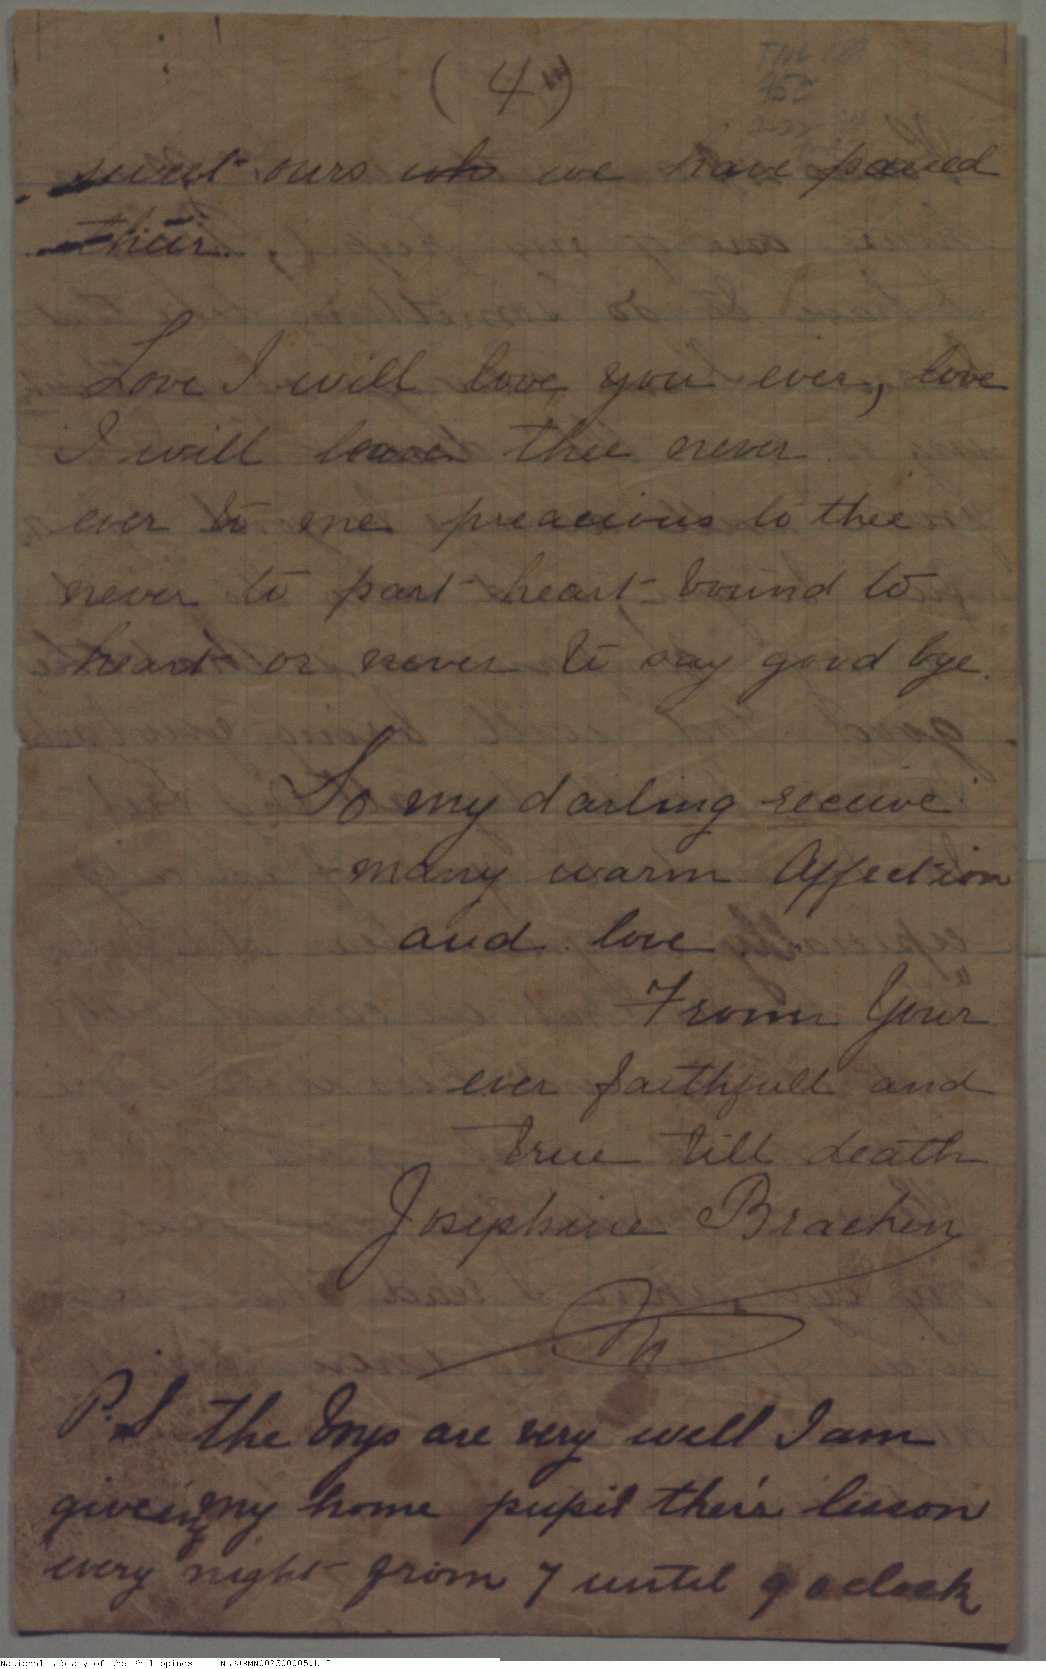 (4th)
sweet ours who we have passed
their.
Love I will love you ever, love
I will leave thee never
ever to me preacious to thee
never to part heart bound to
heart or never to say good bye.
So my darling receive
many warm Affection
and love
From Your
ever faithfull and
true till death
Josephine Bracken
P.S the Boys are very well I am
giveing my home pupil their lesson
every night from 7 until 9 oclock
National Library of the Philippines